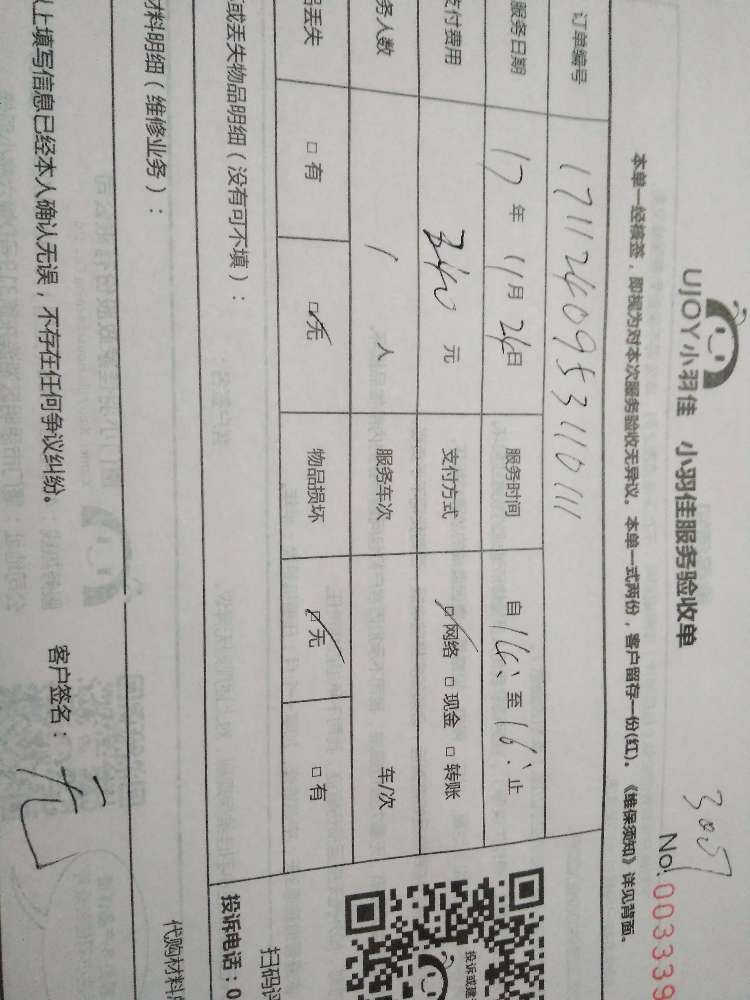 3057
No: 003339
UJOY小羽佳 小羽佳服务验收单
本单一经横签，即视为对本次服务验收无异议。本单一式两份，客户留存一份(红)。《维保须知》详见背面。
订单编号 171124095310111
服务日期 17年 11月 24日 服务时间 自 14: 至 16: 止
支付费用 340 元 支付方式 网络 现金 转账
务人数 1 人 服务车次 车/次
品丢失 有 无 物品损坏 无 有
或丢失物品明细（没有可不填）：
材料明细（维修业务）：
以上填写信息已经本人确认无误，不存在任何争议纠纷。
客户签名：
投诉或建
扫码评
投诉电话：0
代购材料